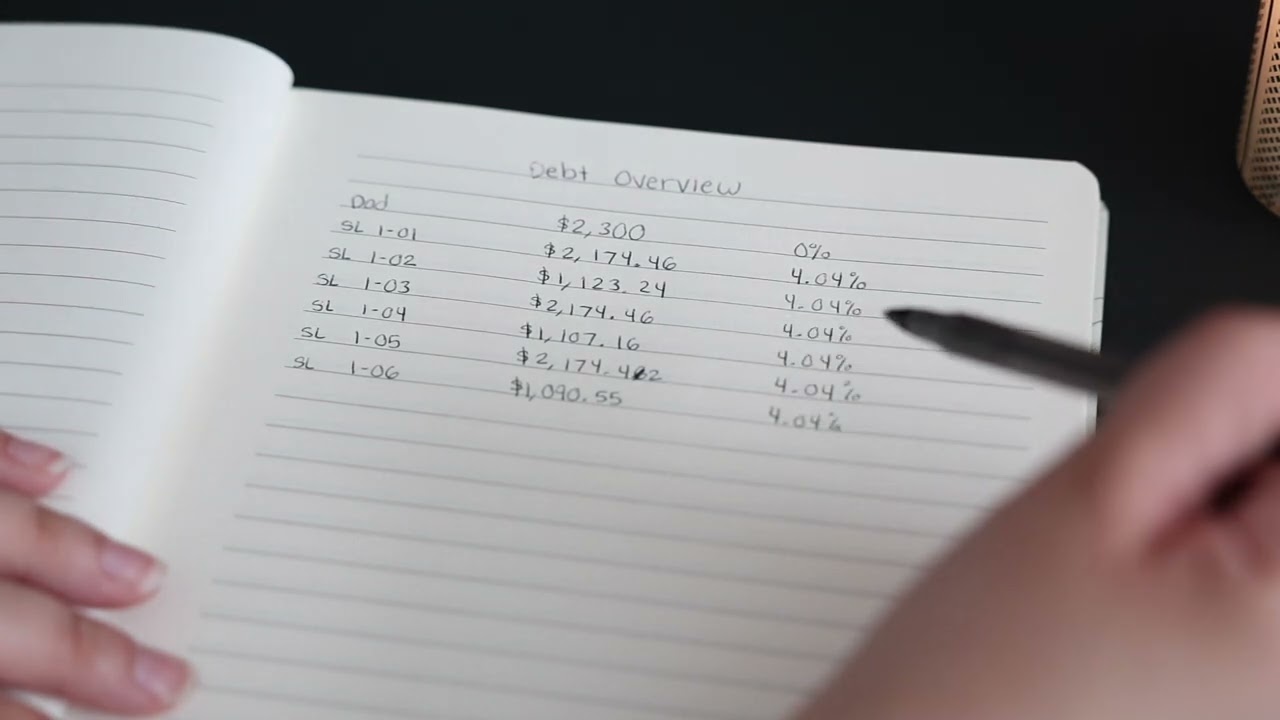 Debt Overview
Dad $2,300 0%
SL 1-01 $2,174.46 4.04%
SL 1-02 $1,123.24 4.04%
SL 1-03 $2,174.46 4.04%
SL 1-04 $1,107.16 4.04%
SL 1-05 $2,174.42 4.04%
SL 1-06 $1,090.55 4.04%